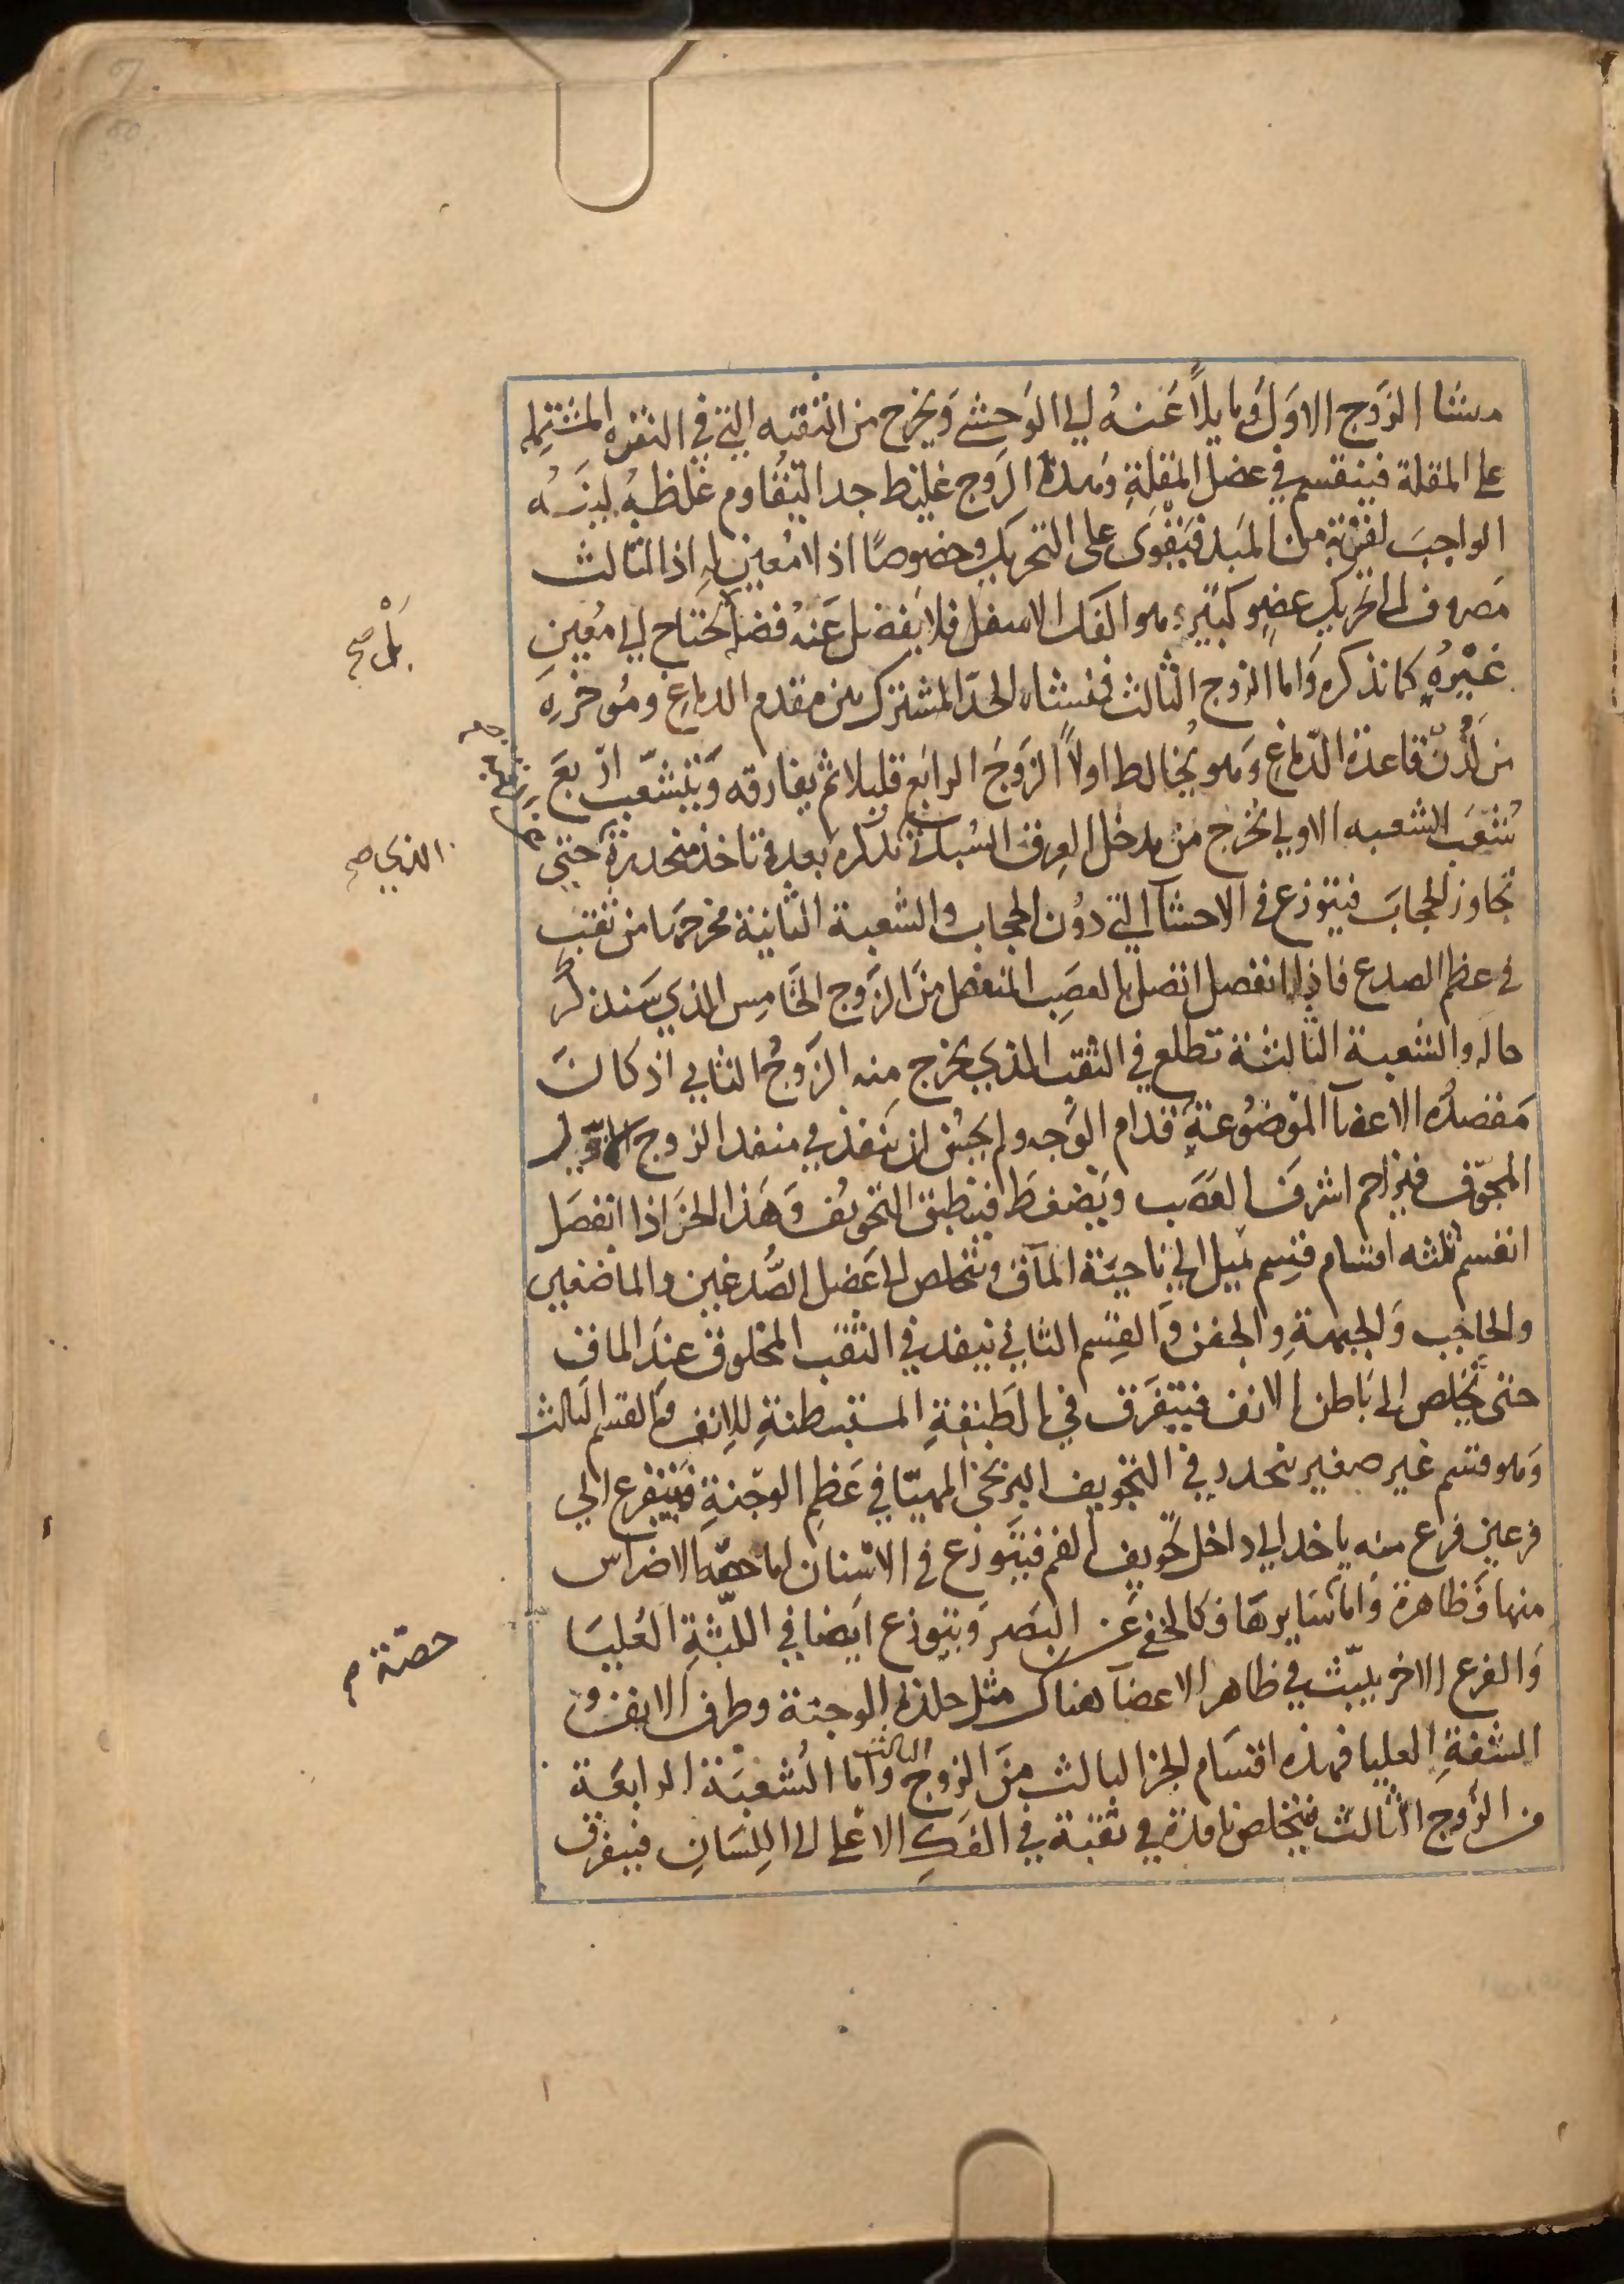 منشا الزَوج الاوَل وَمايلاً عَنهُ الي الوَحشي وَيخرج من الثقبه التي في النقره المشتمله
علي المقلة فينقسم في عضل المقلةِ وَهذا الزَوج غليظ جدا ليُقاوم غلظهُ لينهُ
الواجبَ لقربهِ من المَبدا فيَقوَى على التحريك وخصوصًا اذ لا مُعين له اذ الثالث
مَصروف الى تحريك عضوٍ كبيرٍ هو الفك الاسفل فلا يفضل عَنهُ فضل يحتاج الي مُعينٍ
بَلْ صح
غَيرُه كما نذكره وَاما الزوج الثالث فمنشاه الحدّ المشترك بين مقدم الدماغ ومُوخرهِ
من لدُن قاعدة الدّماغ وَهو يُخالط اولاً الزَوجَ الرابع قليلا ثم يفارقه وَيتشعّب اربعَ
شُعَب الشعبه الاولي تخرج من مدخل العِرق السُباتي نذكره بعد تاخذ منحدرة حتي
الذي صح
تجاوز الحجابَ فيتوزع في الاحشا التي دوُن الحجاب والشعبة الثانية مخرجهَا من ثقبٍ
في عظم الصدع فاذا انفصل اتصل بالعصَبِ المنفصل منَ الزَوج الخامِس الذي سَنذكر
حاله والشعبة الثالثة تطلع في الثقب الذي يخرج منه الزَوجُ الثاني اذ كانَ
مَقصدُه الاعضآ الموَضوُعةِ قدام الوَجه ولم يحسُن ان ينفذ في منفذ الزوج الاوّل
المجوّف فيزاحم اشرفَ العصَب وَيَضغطَ فينطبق التجويف وَهَذا الجز اذا انفصَل
انقسم ثلثه اقسام قسِم يميل الي ناحيَة المآق ويتخلص الى عَضل الصُّدغين والماضغين
والحاجب وَالجبهةِ والجفن وَالقِسم الثاني ينفذ في الثقب المخلوق عِندَ الماق
حتى تخلص الى بَاطن الانف فيتفَرق في الطبقةِ المستبطنةِ للانف وَالقسم الثالث
وَهو قسم غير صغير ينحدر في التجويف البربخي المهيّا في عَظمِ الوجنةِ فيتفرع الي
فرعين فرع منه ياخذ الي داخل تجويف الفم فيتَوزع في الاسنان اما حصّة الاضراس
منها فَظاهرة وَاما سَايرهَا فكالخفي عَن البَصَر وَيتوزع ايَضا في اللّثةِ العُليَا
حصّة م
وَالفرع الاخر ينبّث في ظاهر الاعضآ هناك مثل جلدة الوجنة وطرف الانف و
الشفةِ العليا فهذه اقسَام الجز الثالث منَ الزوج الثالث وَاما الشُعبَة الرابعَة
من الزَوج الثالث فيتخلص نافذة في ثقبة في الفَكِ الاعلى الى اللِسَانِ فيتفرق